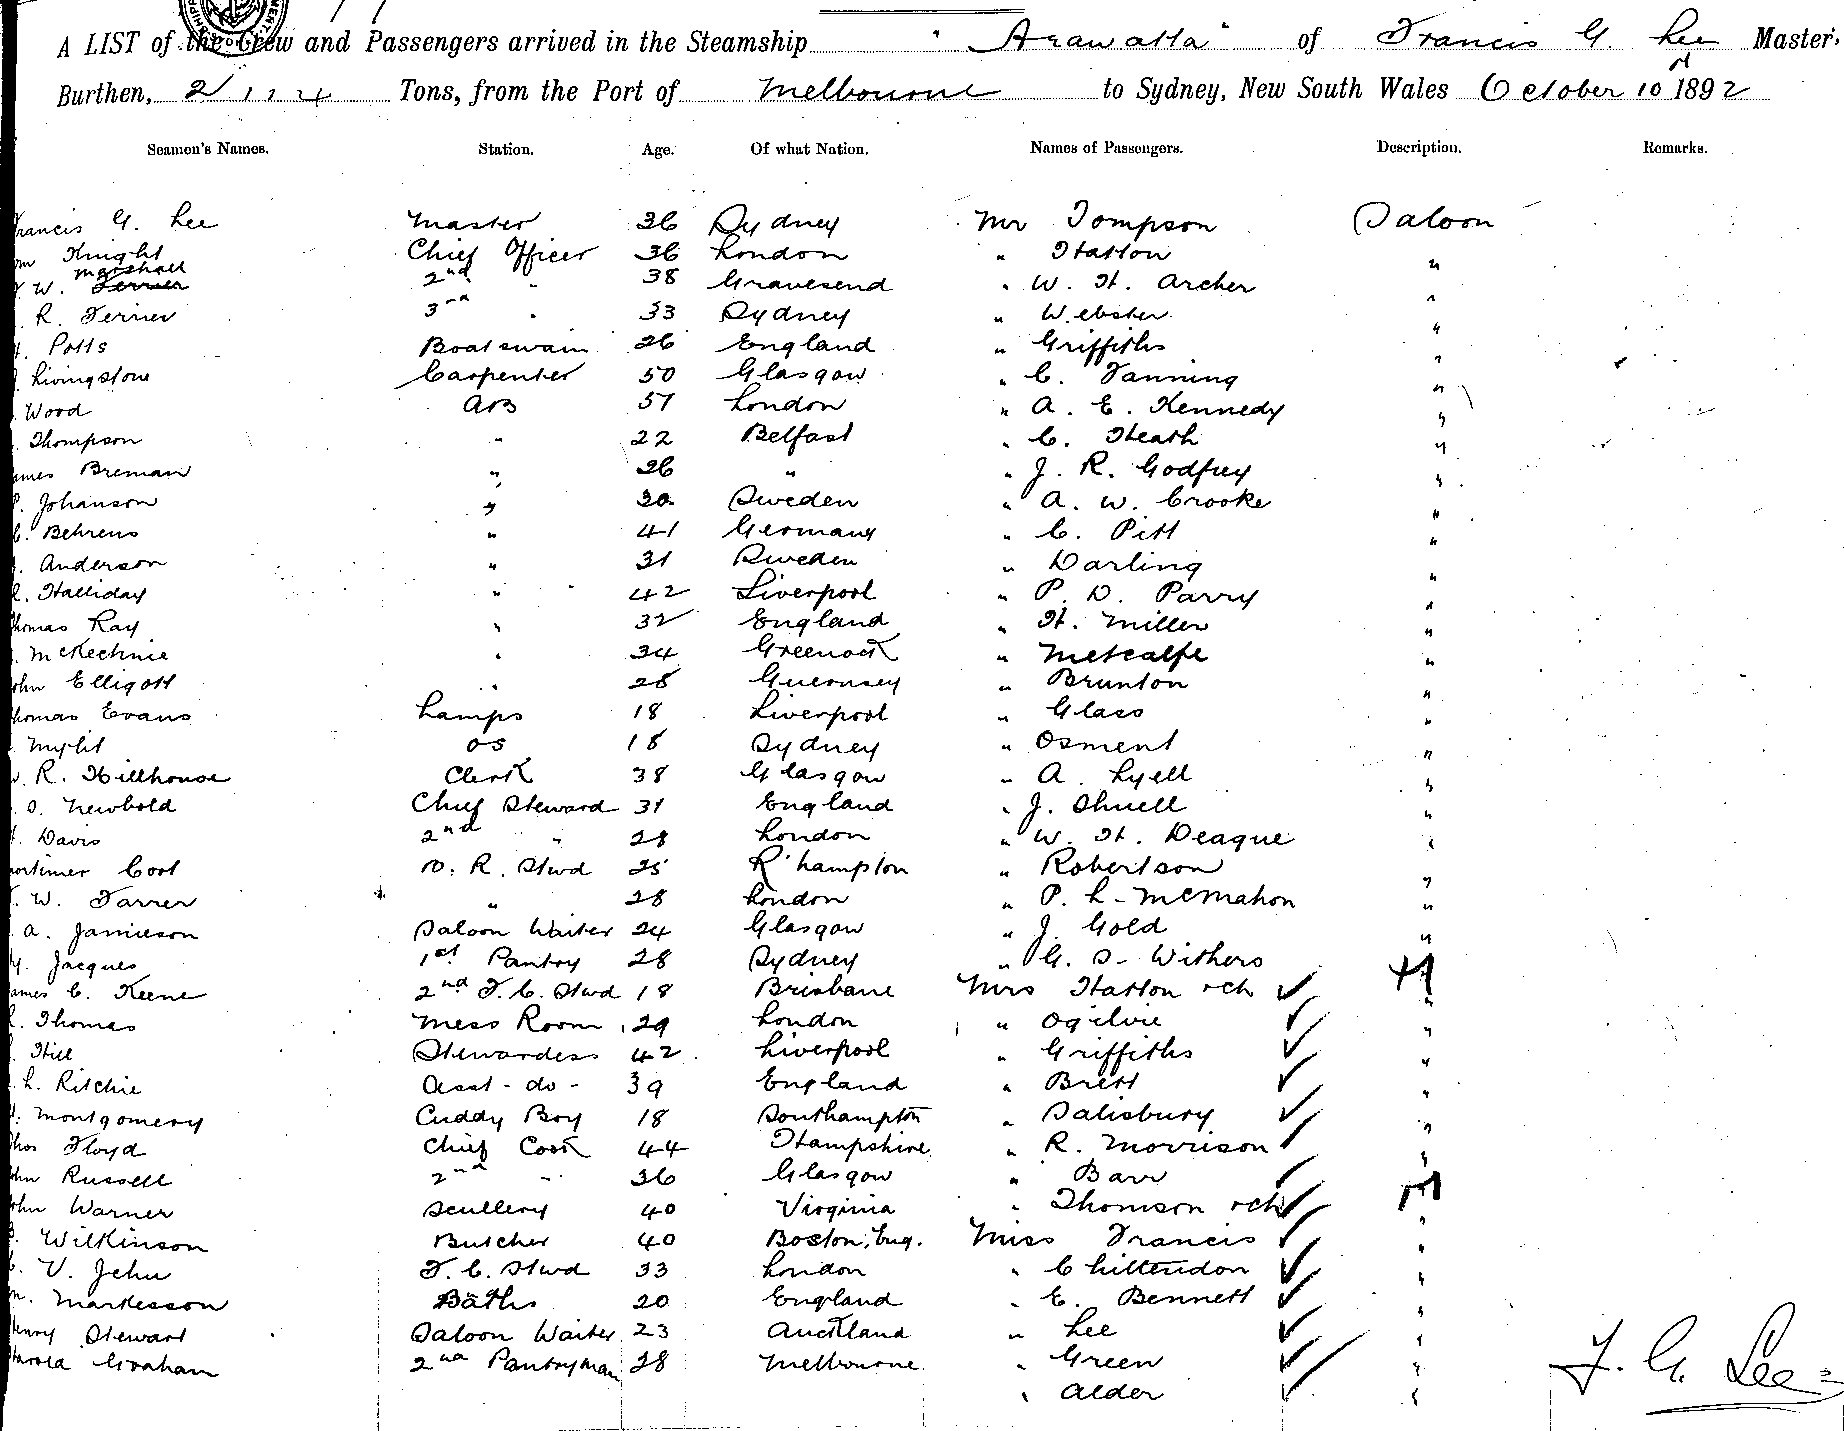 A LIST of the Crew and Passengers arrived in the Steamship "Arawatta" of Francis G. Lee Master,
Burthen, 2114 Tons, from the Port of Melbourne to Sydney, New South Wales October 10 1892
Seamen's Names. Station. Age. Of what Nation. Names of Passengers. Description. Remarks.
Francis G. Lee Master 36 Sydney Mr Tompson Saloon
Knight Chief Officer 36 London " Hatton "
W. Marshall 2nd " 38 Gravesend " W. H. Archer "
R. Ferrier 3rd " 33 Sydney " Webster "
Potts Boatswain 26 England " Griffiths "
Livingstone Carpenter 50 Glasgow " C. Fanning "
Wood AB 51 London " A. E. Kennedy "
Thompson " 22 Belfast " C. Heath "
James Breman " 26 " " J. R. Godfrey "
P. Johanson " 30 Sweden " A. W. Crooke "
C. Behrens " 41 Germany " C. Pitt "
Anderson " 31 Sweden " Darling "
R. Halliday " 42 Liverpool " P. D. Parry "
Thomas Ray " 32 England " H. Miller "
McKechnie " 34 Greenock " Metcalfe "
John Elligott " 28 Guernsey " Brunton "
Thomas Evans Lamps 18 Liverpool " Glass "
OS 18 Sydney " Osment "
R. Hillhouse Clerk 38 Glasgow " A. Lyell "
S. Newbold Chief Steward 31 England " J. "
Davis 2nd " 28 London " W. H. Deague "
Mortimer Coot D. R. Stwd 25 R'hampton " Robertson "
W. Farrer " 28 London " P. L. McMahon "
A. Jamieson Saloon Waiter 24 Glasgow " J. Gold "
Jacques 1st Pantry 28 Sydney " G. S. Withers "
James C. Keene 2nd F. C. Stwd 18 Brisbane Mrs Hatton + ch "
Thomas Mess Room 29 London " Ogilvie "
Hill Stewardess 42 Liverpool " Griffiths "
L. Ritchie Asst - do - 39 England " Brett "
Montgomery Cuddy Boy 18 Southampton " Salisbury "
Thos Floyd Chief Cook 44 Hampshire " R. Morrison "
John Russell 2nd " 36 Glasgow " Barr "
John Warner Scullery 40 Virginia " Thomson + ch "
Wilkinson Butcher 40 Boston, Eng. Miss Francis "
V. Jehu F. C. Stwd 33 London " Chittendon "
Markesson Baths 20 England " E. Bennett "
Henry Stewart Saloon Waiter 23 Auckland " Lee "
Harold Graham 2nd Pantryman 28 Melbourne " Green "
" Alder "
F. G. Lee